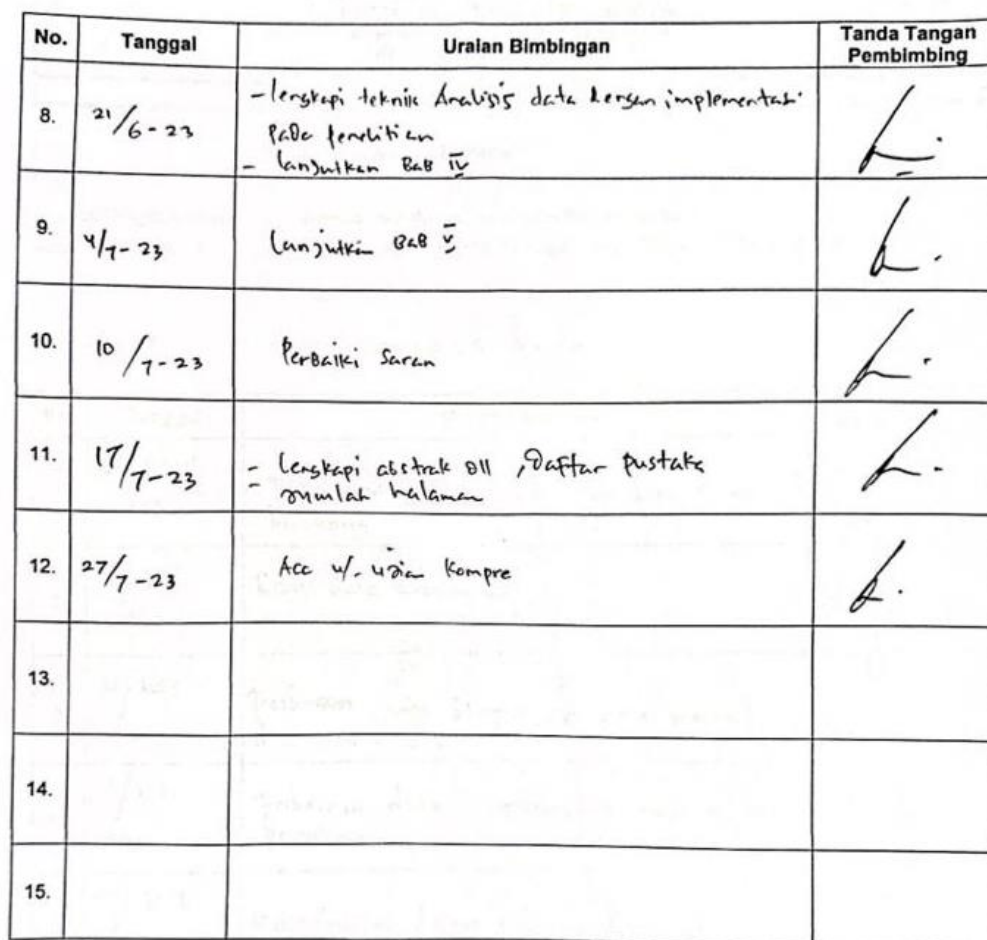 No. Tanggal Uraian Bimbingan Tanda Tangan Pembimbing
8. 21/6-23 - lengkapi teknik Analisis data dengan implementasi
pada penelitian
- lanjutkan BAB IV
9. 4/7-23 lanjutkan BAB V
10. 10/7-23 Perbaiki Saran
11. 17/7-23 - lengkapi abstrak dll, Daftar pustaka
- Jumlah halaman
12. 27/7-23 Acc u/. ujian Kompre
13.
14.
15.